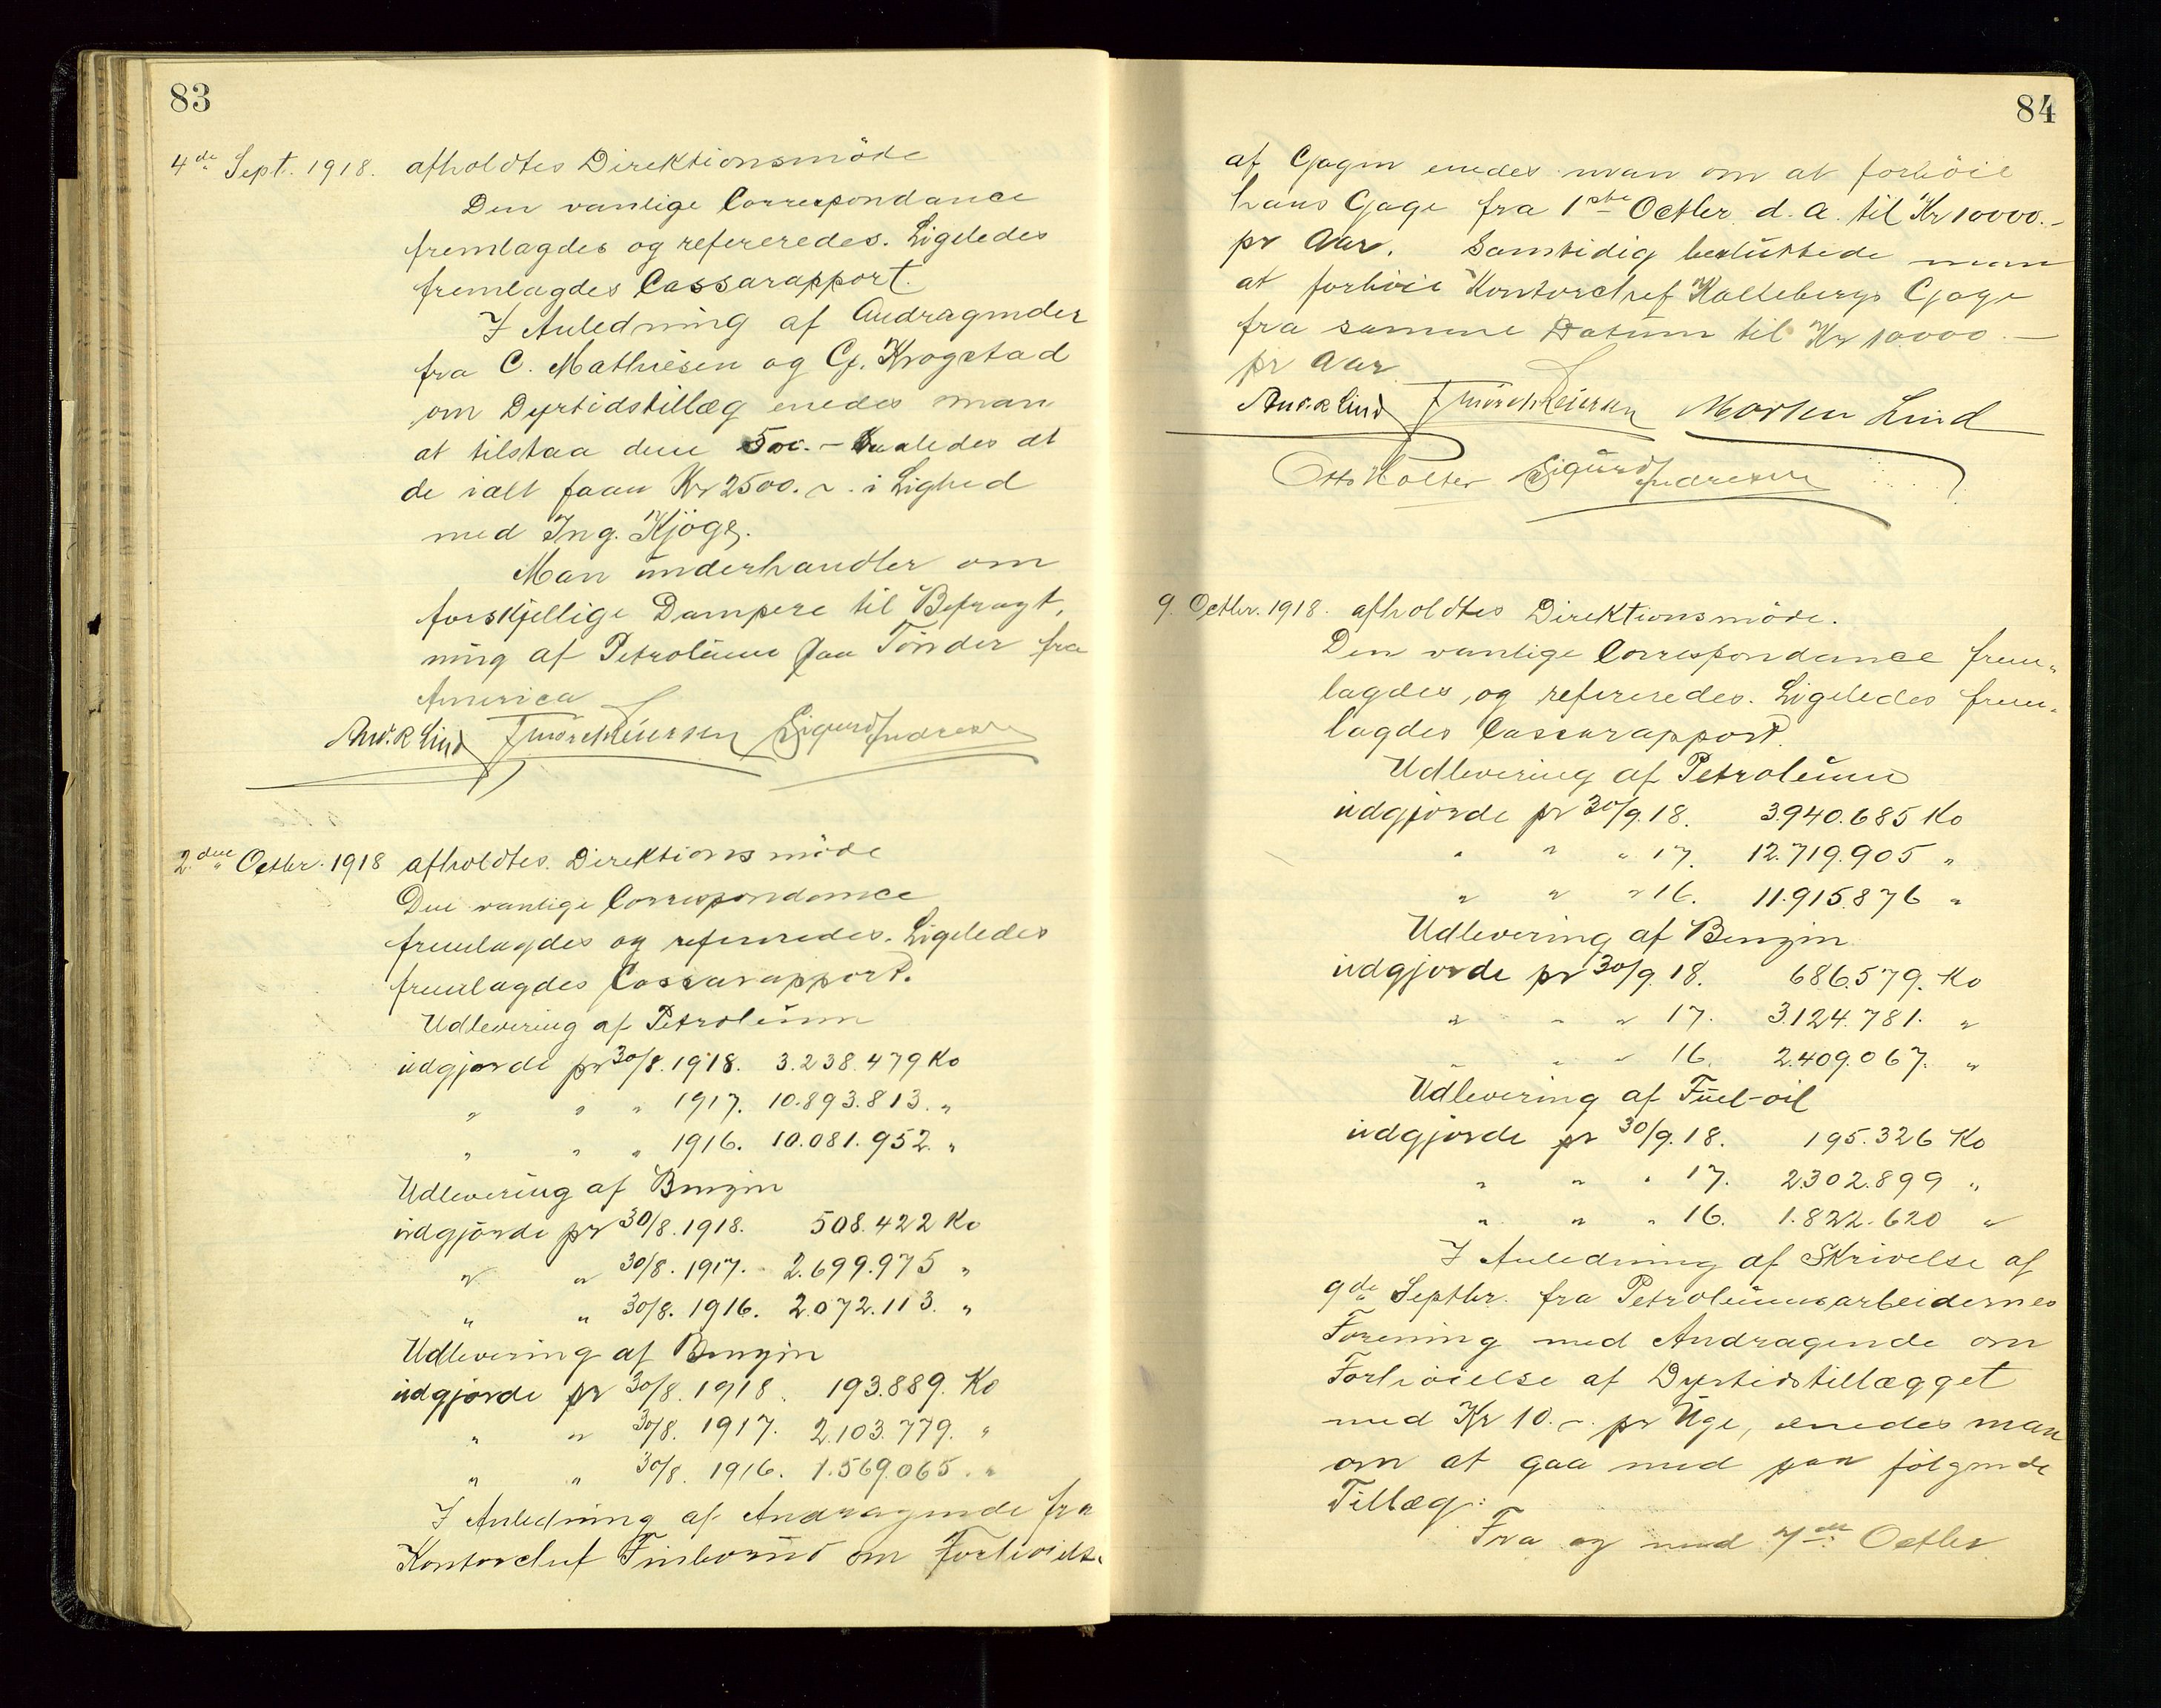 83
4de Sept. 1918. afholdtes Direktionsmöde
Den vanlige Correspondance
fremlagdes og refereredes. Ligeledes
fremlagdes Cassarapport.
I Anledning af Andragender
fra C. Mathiesen og G. Krogstad
om Dyrtidstillæg enedes man
at tilstaa dem 500.- saaledes at
de ialt faar Kr 2500.- i Lighed
med Ing. Kjög.
Man underhandler om
forskjellige Dampere til Befragt,
ning af Petroleum paa Tönder fra
America
And. R Lind Sigurd Andresen
2den Octbr. 1918 afholdtes Direktionsmöde
Den vanlige Correspondance
fremlagdes og refereredes. Ligeledes
fremlagdes Cassarapport.
Udlevering af Petroleum
udgjorde pr 30/8. 1918. 3.238.479 Ko
" " " 1917. 10.893.813. "
" " " 1916. 10.081.952. "
Udlevering af Benzin
udgjorde pr 30/8. 1918. 508.422 Ko
" " 30/8. 1917. 2.699.975 "
" " 30/8. 1916. 2.072.113. "
Udlevering af Benzin
udgjorde pr 30/8. 1918. 193.889. Ko
" " 30/8. 1917. 2.103.779. "
" " 30/8. 1916. 1.569.065. "
I Anledning af Andragende fra
Kontorchef om Forhöielse
84
af Gagen enedes man om at forhöie
hans Gage fra 1ste Octbr d. a. til Kr 10000.-
pr Aar. Samtidig besluttede man
at forhöie Kontorchef Kallebergs Gage
fra samme Datum til Kr 10000.-
pr Aar
And. R Lind Morten Lind
Otto Holter Sigurd Andresen
9. Octbr. 1918. afholdtes Direktionsmöde.
Den vanlige Correspondance frem-
lagdes og refereredes. Ligeledes frem-
lagdes Cassarapport.
Udlevering af Petroleum
udgjorde pr 30/9. 18. 3.940.685 Ko
" " " 17. 12.719.905 "
" " " 16. 11.915.876 "
Udlevering af Benzin
udgjorde pr 30/9. 18. 686.579. Ko
" " " 17. 3.124.781. "
" " " 16. 2.409.067. "
Udlevering af Fuel-oil
udgjorde pr 30/9. 18. 195.326 Ko
" " " 17. 2.302.899 "
" " " 16. 1.822.620 "
I Anledning af Skrivelse af
9de Septbr. fra Petroleumsarbeidernes
Forening med Andragende om
Forhöielse af Dyrtidstillægget
med Kr 10.- pr Uge, enedes man
om at gaa med paa fölgende
Tillæg:
Fra og med 7de Octbr